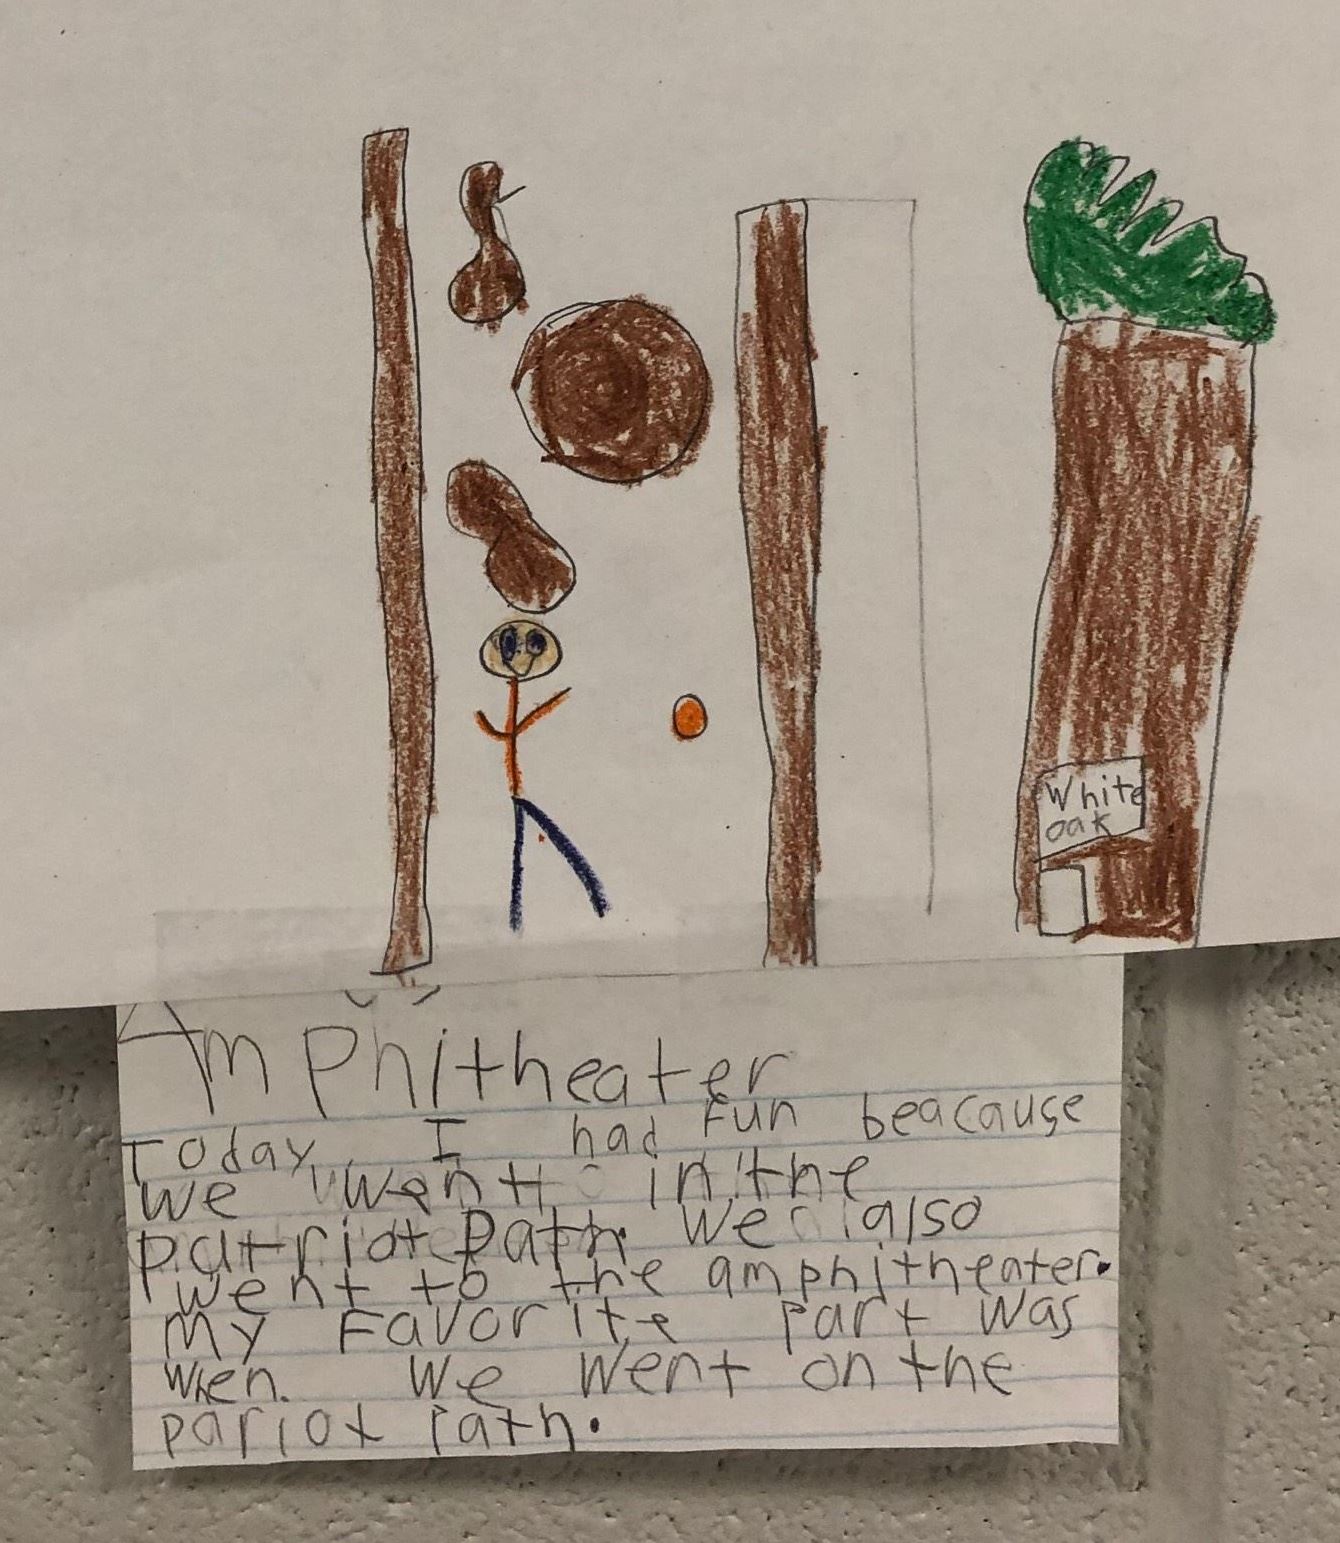 White
oak
Amphitheater
Today I had Fun beacause
we went in the
patriot path. We also
went to the amphitheater.
My Favorite part was
when. we went on the
pariot path.